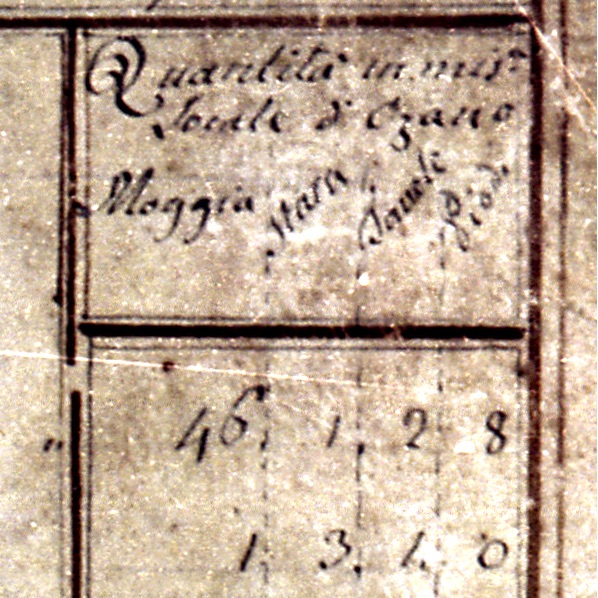 Quantità in mis.ª
locale d'Ozano
Moggia Stara Tavole Piedi
46, 1, 2 8
1, 3, 1, 0